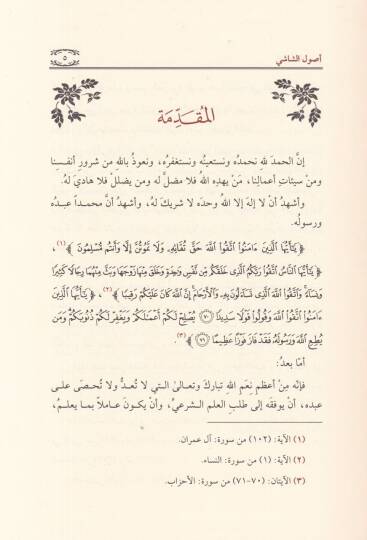 أصول الشاشي
٥
المُقَدِّمَة
إنَّ الحمدَ للهِ نحمدُه ونستعينُه ونستغفرُه، ونعوذُ باللهِ من شرورِ أنفسِنا
ومن سيئاتِ أعمالِنا، مَنْ يهدِهِ اللهُ فلا مضلَّ له ومن يضللْ فلا هاديَ لهُ.
وأشهدُ أنْ لا إلهَ إلا اللهُ وحدَه لا شريكَ لهُ، وأشهدُ أنَّ محمداً عبدُه
ورسولُه.
﴿ يَٰٓأَيُّهَا ٱلَّذِينَ ءَامَنُوا۟ ٱتَّقُوا۟ ٱللَّهَ حَقَّ تُقَاتِهِۦ وَلَا تَمُوتُنَّ إِلَّا وَأَنتُم مُّسْلِمُونَ ﴾(١)،
﴿ يَٰٓأَيُّهَا ٱلنَّاسُ ٱتَّقُوا۟ رَبَّكُمُ ٱلَّذِى خَلَقَكُم مِّن نَّفْسٍ وَٰحِدَةٍ وَخَلَقَ مِنْهَا زَوْجَهَا وَبَثَّ مِنْهُمَا رِجَالًا كَثِيرًا
وَنِسَآءً ۚ وَٱتَّقُوا۟ ٱللَّهَ ٱلَّذِى تَسَآءَلُونَ بِهِۦ وَٱلْأَرْحَامَ ۚ إِنَّ ٱللَّهَ كَانَ عَلَيْكُمْ رَقِيبًا ﴾(٢)، ﴿ يَٰٓأَيُّهَا ٱلَّذِينَ
ءَامَنُوا۟ ٱتَّقُوا۟ ٱللَّهَ وَقُولُوا۟ قَوْلًا سَدِيدًا ﴿٧٠﴾ يُصْلِحْ لَكُمْ أَعْمَٰلَكُمْ وَيَغْفِرْ لَكُمْ ذُنُوبَكُمْ ۗ وَمَن
يُطِعِ ٱللَّهَ وَرَسُولَهُۥ فَقَدْ فَازَ فَوْزًا عَظِيمًا ﴿٧١﴾ ﴾(٣).
أمّا بعدُ:
فإنّه مِنْ أعظمِ نِعَمِ اللهِ تباركَ وتعالىٰ التي لا تُعدُّ ولا تُحصَى على
عبدِه، أنْ يوفقَه إلى طلبِ العلمِ الشرعيِّ، وأنْ يكونَ عاملاً بما يعلمُ،
(١) الآية: (١٠٢) من سورة: آل عمران.
(٢) الآية: (١) من سورة: النساء.
(٣) الآيتان: (٧٠-٧١) من سورة: الأحزاب.